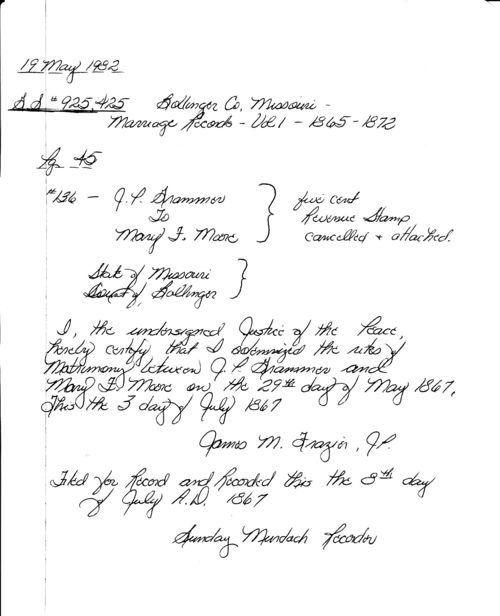 19 May 1982
S S # 925,425 Bollinger Co, Missouri -
Marriage Records - Vol 1 - 1865-1872
Pg 45
#136 - J. P. Grammer
To
Mary F. Moore
five cent
Revenue Stamp
cancelled + attached.
State of Missouri
County of Bollinger
I, the undersigned Justice of the Peace,
hereby certify that I solemnized the rites of
Matrimony between J. P. Grammer and
Mary F. Moore on the 29th day of May 1867,
This the 3 day of July 1867
James M. Frazier, J.P.
Filed for Record and Recorded this the 8th day
of July A.D. 1867
Sunday Murdach Recorder